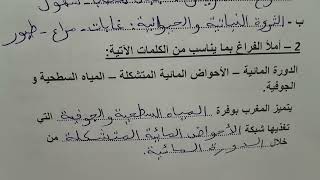 ب - الثروة النباتية والحيوانية: غابات - مراع - طيور
2 – أملأ الفراغ بما يناسب من الكلمات الآتية:
الدورة المائية – الأحواض المائية المتشكلة – المياه السطحية و
الجوفية.
يتميز المغرب بوفرة المياه السطحية والجوفية التي
تغذيها شبكة الأحواض المائية المتشكلة من
خلال الدورة المائية.